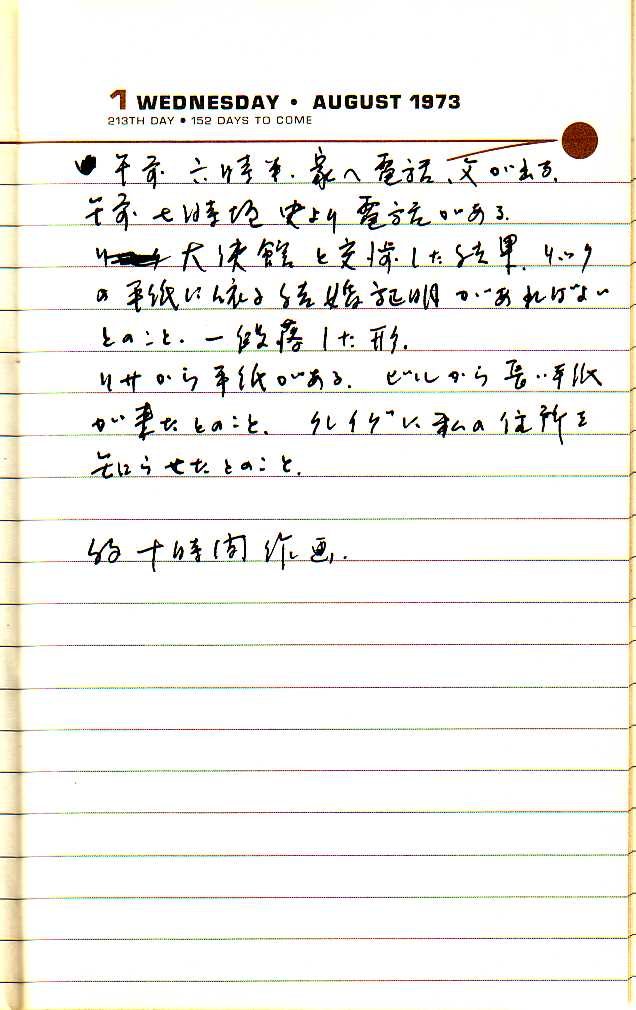 1 WEDNESDAY • AUGUST 1973
213TH DAY • 152 DAYS TO COME
午前六時半.家へ電話、父が出る.
午前七時頃 史より電話がある.
大使館と交渉した結果、リック
の手紙に依る結婚証明があればよい
とのこと.一段落した形.
リサから手紙がある.ビルから長い手紙
が来たとのこと.クレイグに私の住所を
知らせたとのこと.
約十時間作画.